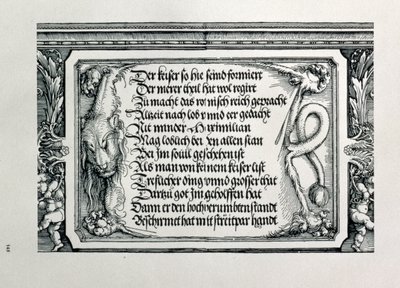 Der keiser so hie seind formiert
Der merer theil hat wol regirt
Zu macht das romisch reich gepracht
Alzeit nach lob vnnd eer gedacht
Nit minder Maximilian
Mag loblich bey vn allen stan
Bei Im souil geschehen ist
Als man von keinem keiser list
Trefflicher ding vnnd grosser that
Dartzu got Im geholffen hat
Dann er den hochverumbten standt
Beschirmet hat mit streitpar handt